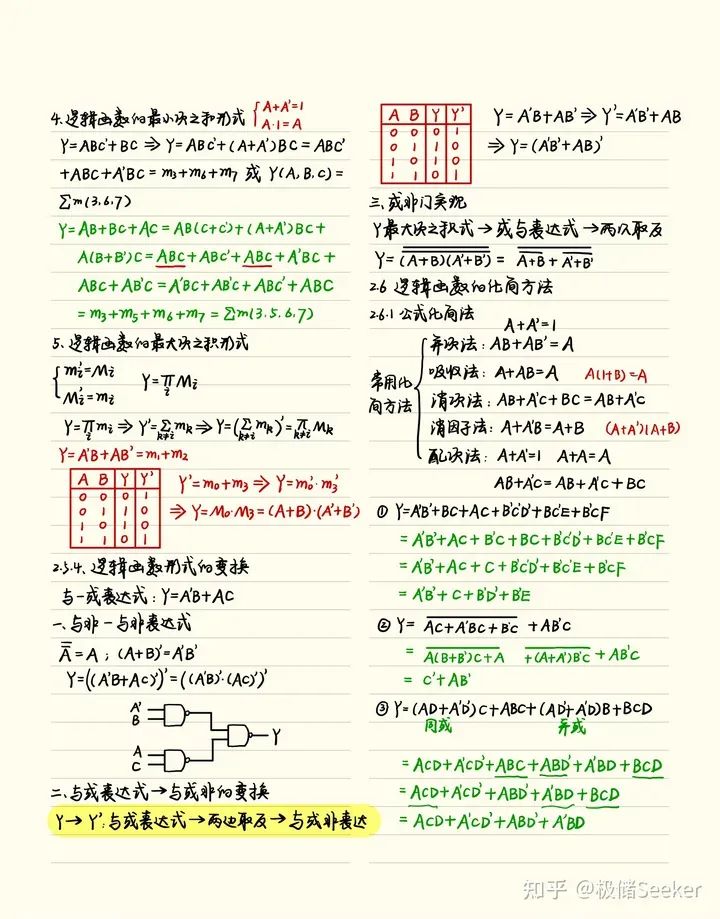 4.逻辑函数的最小项之和形式 { A+A'=1
A·1=A
Y=ABC'+BC ⇒ Y=ABC'+(A+A')BC=ABC'
+ABC+A'BC=m₃+m₆+m₇ 或 Y(A,B,C)=
Σm(3,6,7)
Y=AB+BC+AC=AB(C+C')+(A+A')BC+
A(B+B')C=ABC+ABC'+ABC+A'BC+
ABC+AB'C=A'BC+AB'C+ABC'+ABC
=m₃+m₅+m₆+m₇=Σm(3,5,6,7)
5.逻辑函数的最大项之积形式
{ mᵢ'=Mᵢ
Mᵢ'=mᵢ
Y=∏ᵢ Mᵢ
Y=∏ᵢ mᵢ ⇒ Y'=Σ_{k≠i} mₖ ⇒ Y=(Σ_{k≠i} mₖ)'=∏_{k≠i} Mₖ
Y=A'B+AB'=m₁+m₂
A B Y Y'
0 0 0 1
0 1 1 0
1 0 1 0
1 1 0 1
Y'=m₀+m₃ ⇒ Y=m₀'·m₃'
⇒ Y=M₀·M₃=(A+B)·(A'+B')
2.5.4.逻辑函数形式的变换
与—或表达式:Y=A'B+AC
一、与非—与非表达式
A̿=A;(A+B)'=A'B'
Y=((A'B+AC)')'=((A'B)'·(AC)')'
A'
B
A
C
Y
二、与或表达式→与或非的变换
Y→Y':与或表达式→两边取反→与或非表达
A B Y Y'
0 0 0 1
0 1 1 0
1 0 1 0
1 1 0 1
Y=A'B+AB' ⇒ Y'=A'B'+AB
⇒ Y=(A'B'+AB)'
三、或非门实现
Y最大项之积式→或与表达式→两次取反
Y=\overline{\overline{(A+B)(A'+B')}}=\overline{\overline{A+B}+\overline{A'+B'}}
2.6 逻辑函数的化简方法
2.6.1 公式化简法
A+A'=1
常用化
简方法
并项法:AB+AB'=A
吸收法:A+AB=A A(1+B)=A
消项法:AB+A'C+BC=AB+A'C
消因子法:A+A'B=A+B (A+A')(A+B)
配项法:A+A'=1 A+A=A
AB+A'C=AB+A'C+BC
① Y=A'B'+BC+AC+B'C'D'+BC'E+B'CF
=A'B'+AC+B'C+BC+B'C'D'+BC'E+B'CF
=A'B'+AC+C+B'C'D'+BC'E+B'CF
=A'B'+C+B'D'+B'E
② Y=\overline{AC+A'BC+B'C}+AB'C
=\overline{A(B+B')C+A} \overline{+(A+A')B'C}+AB'C
=C'+AB'
③ Y=(AD+A'D')C+ABC+(AD'+A'D)B+BCD
同或 异或
=ACD+A'CD'+ABC+ABD'+A'BD+BCD
=ACD+A'CD'+ABD'+A'BD+BCD
=ACD+A'CD'+ABD'+A'BD
知乎 @极储Seeker